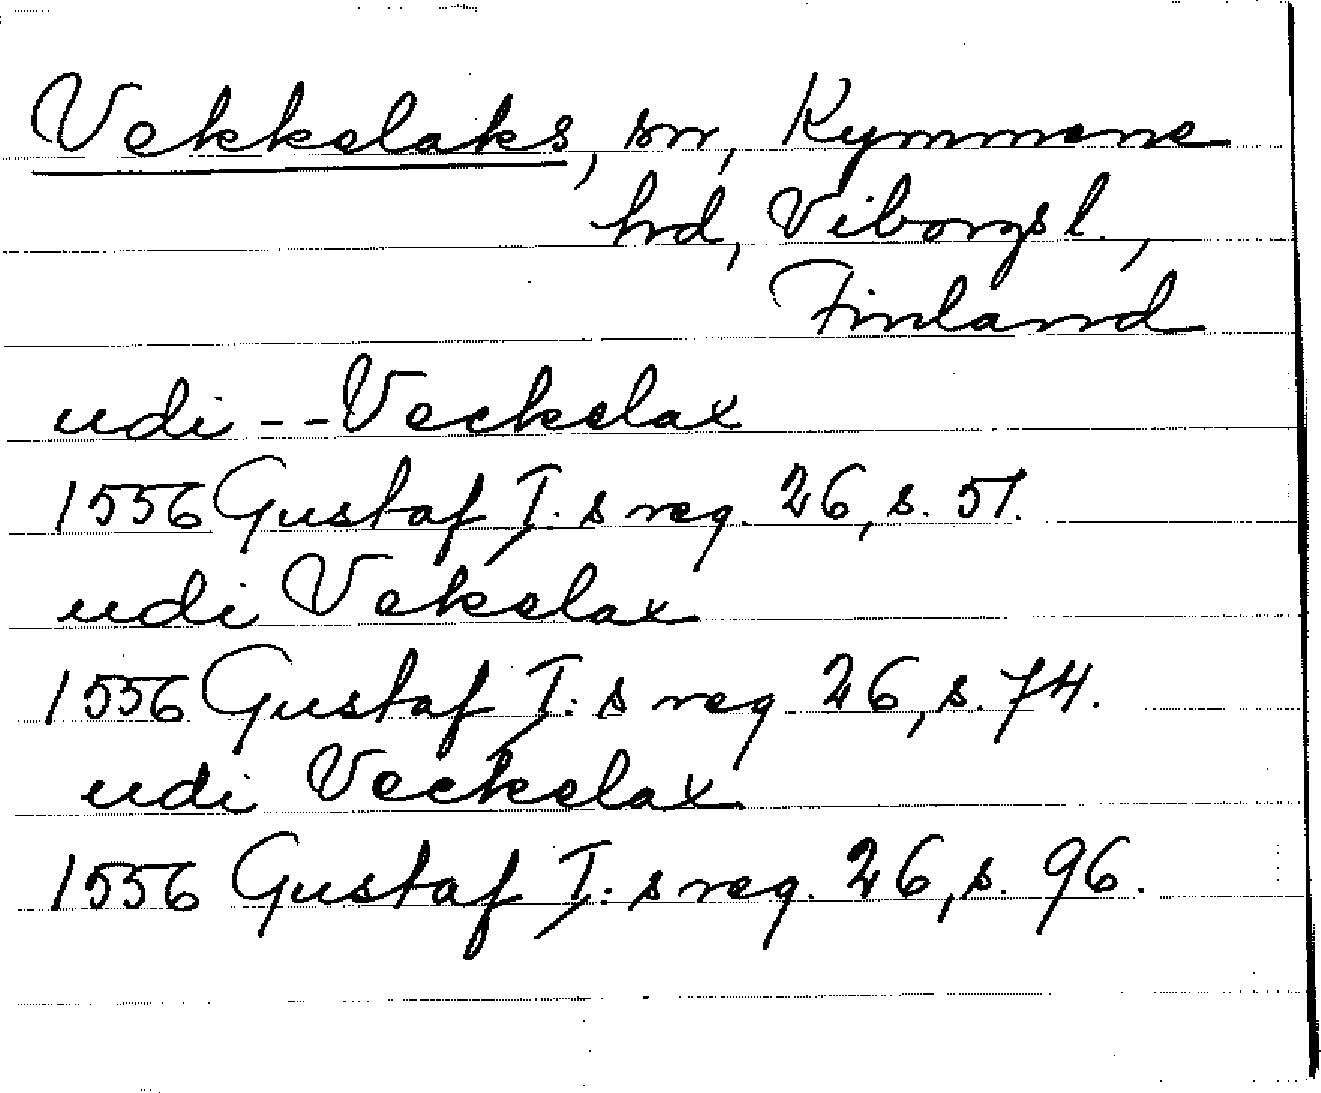 Vekkelaks, sn, Kymmene
hrd, Viborgs l.,
Finland
udi -- Veckelax
1556 Gustaf I:s reg. 26, s. 51.
udi Vekelax
1556 Gustaf I:s reg 26, s. 74.
udi Veckelax
1556 Gustaf I:s reg. 26, s. 96.